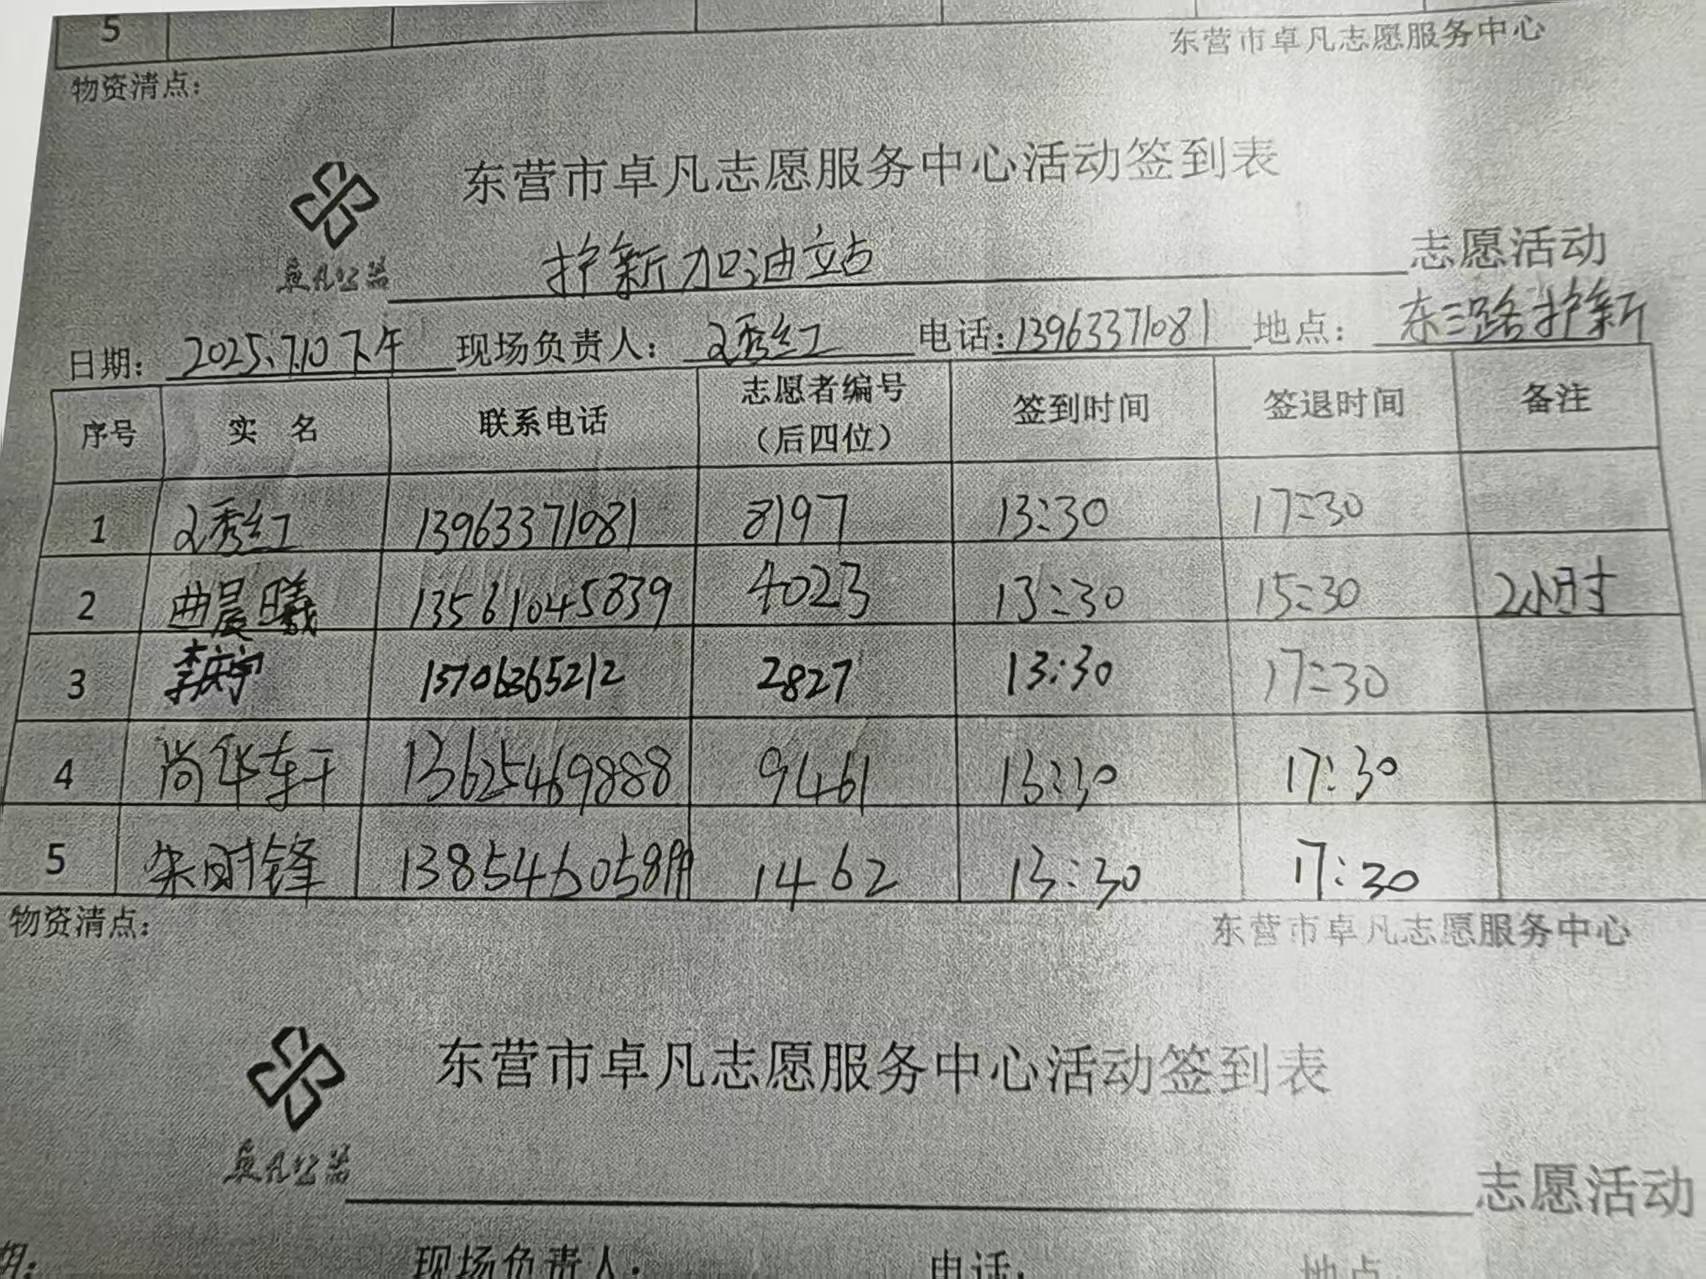 5
东营市卓凡志愿服务中心
物资清点：
东营市卓凡志愿服务中心活动签到表
卓凡公益
护新加油立占 志愿活动
日期：2025.7.10下午 现场负责人：秀红 电话：13963371081 地点：东三路护新
序号 实 名 联系电话 志愿者编号（后四位） 签到时间 签退时间 备注
1 秀红 13963371081 8197 13:30 17:30
2 曲晨曦 13561045839 4023 13:30 15:30 2小时
3 李庆宇 13706365212 2827 13:30 17:30
4 尚华轩 13625469888 9461 13:30 17:30
5 朱时锋 1385460589 1462 13:30 17:30
物资清点：
东营市卓凡志愿服务中心
东营市卓凡志愿服务中心活动签到表
卓凡公益
志愿活动
期： 现场负责人： 电话： 地点